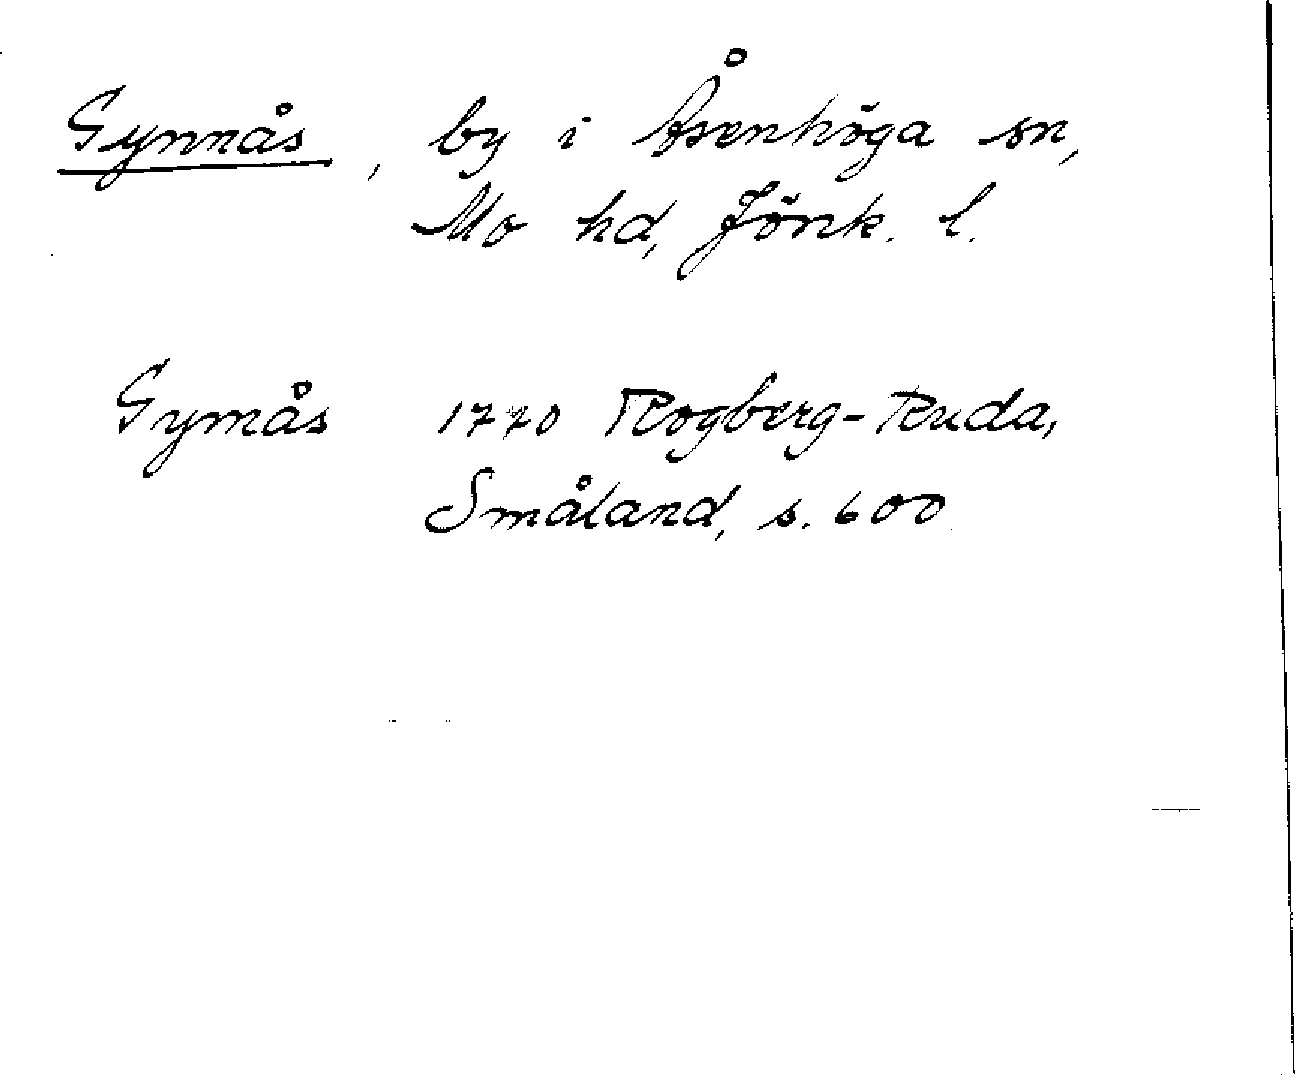 Gynnås, by i Åsenhöga sn,
Mo hd, Jönk. l.
Gymås 1770 Rogberg-Ruda,
Småland, s. 600